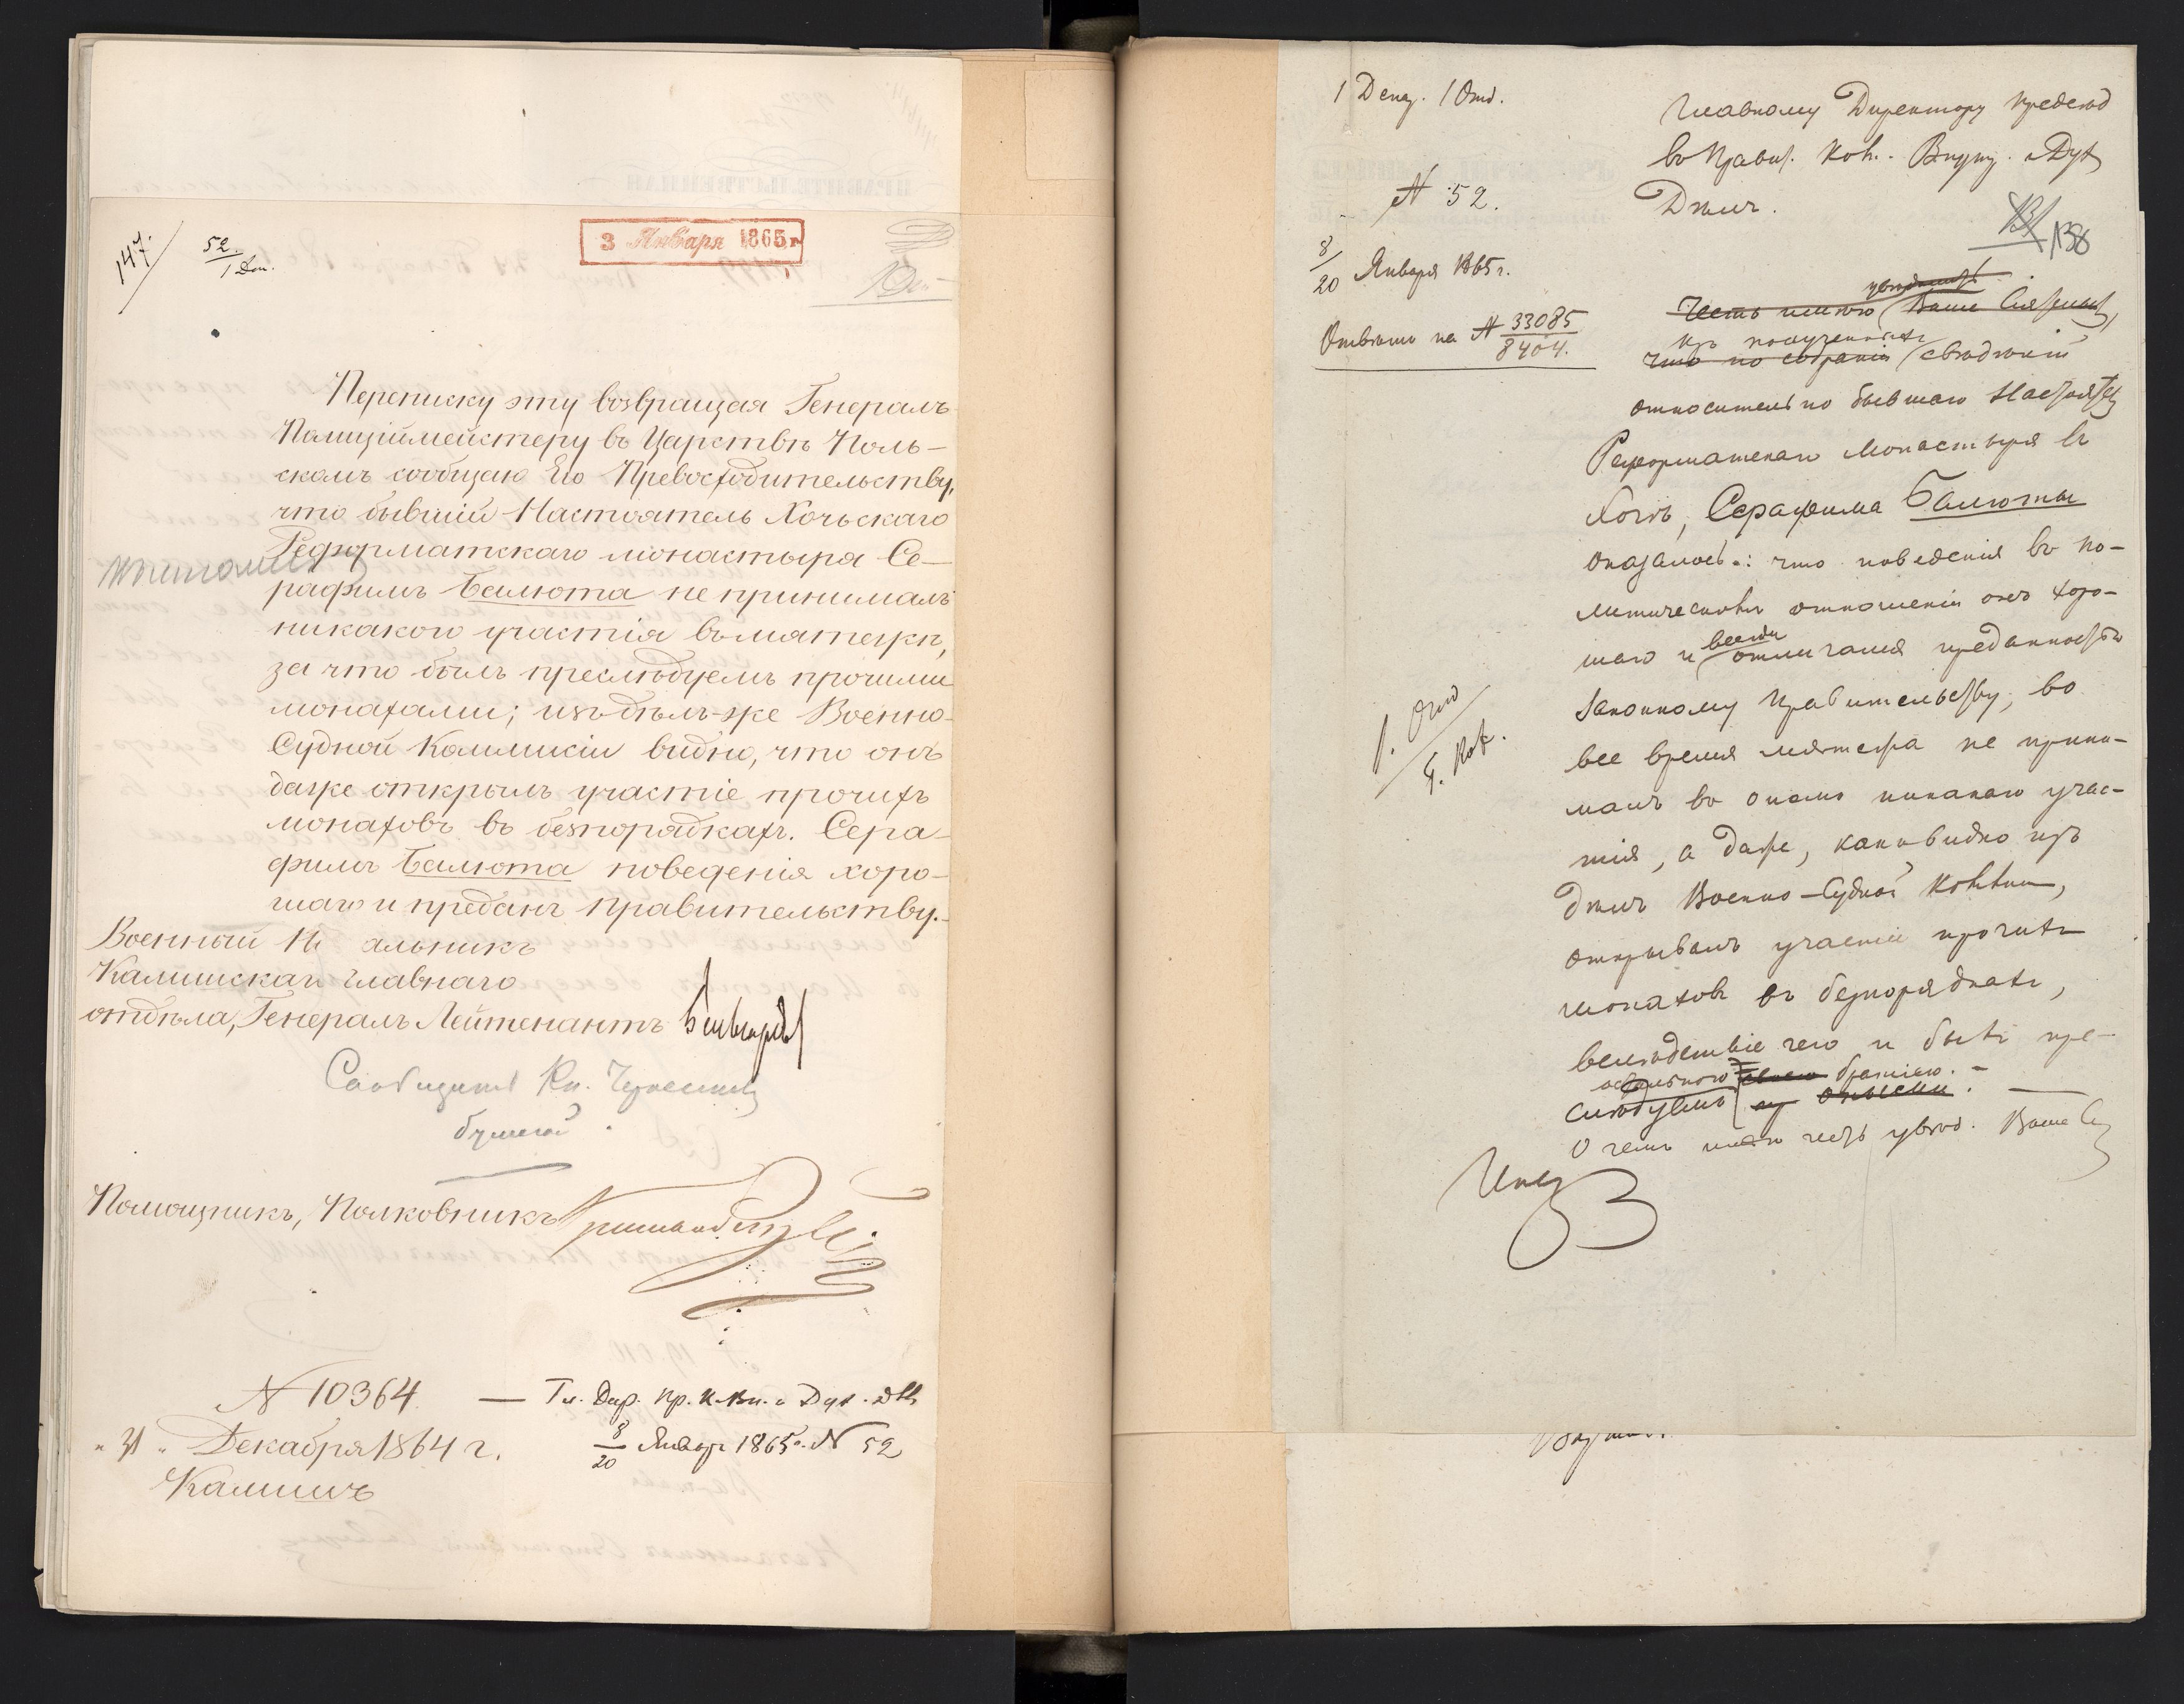 147.
52.
1 Деп.
3 Января 1865 г
Переписку эту возвращая Генералъ-
Полиціймейстеру въ Царствѣ Поль-
скомъ сообщаю Его Превосходительству,
что бывшій Настоятель Хочьскаго
Реформатскаго монастыря Се-
рафимъ Балюта не принималъ
никакого участія въ мятежѣ,
за что былъ преслѣдуемъ прочими
монахами; изъ дѣлъ-же Военно-
Судной Коммисіи видно, что онъ
даже открылъ участіе прочихъ
монаховъ въ безпорядкахъ. Сера-
фимъ Балюта поведенія хоро-
шаго и преданъ правительству.
Военный Начальникъ
Калишскаго главнаго
отдѣла, Генералъ Лейтенантъ
Сообщить Кн. Черкасск
бумагой.
Помощникъ, Полковникъ
№ 10364. — Гл. Дир. Пр. К. Вн. и Дух. дѣл
"31" Декабря 1864 г.
8/20 Январ 1865 г. № 52
Калишъ
1 Деп. 1 Отд.
№ 52.
8/20 Января 1865 г.
Отвѣтъ на № 33085/8404.
Главному Директору Предсѣд
въ Правит. Ком. Внутр. и Дух
Дѣлъ.
138
увѣдомить
Честь имѣю Ваше Сіятельс,
изъ полученныхъ
что по собраніи свѣдѣній
относительно бывшаго Настоят
Реформатскаго Монастыря въ
Хочѣ, Серафима Балюты
оказалось: что поведенія въ по-
литическомъ отношеніи онъ хоро-
шаго и всегда отличался преданностью
Законному Правительству, во
все время мятежа не прини-
малъ въ ономъ никакого учас-
тія, а даже, какъ видно изъ
дѣлъ Военно-Судной Комми,
открывалъ участіе прочихъ
монаховъ въ безпорядкахъ,
вслѣдствіе чего и былъ пре-
остальною своею братіею. -
слѣдуемъ
О чемъ имѣю честь увѣд. Ваше С
1. Отд